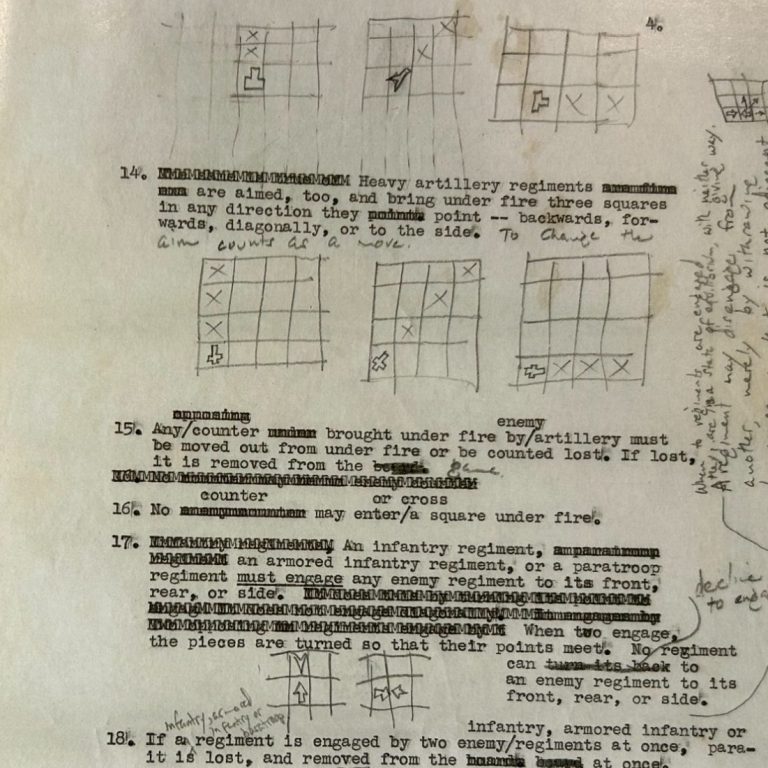 4.
14. Heavy artillery regiments
are aimed, too, and bring under fire three squares
in any direction they point -- backwards, for-
wards, diagonally, or to the side. To change the
aim counts as a move.
opposing enemy
15. Any/counter brought under fire by/artillery must
be moved out from under fire or be counted lost. If lost,
it is removed from the game.
counter or cross
16. No may enter/a square under fire.
17. An infantry regiment,
an armored infantry regiment, or a paratroop
regiment must engage any enemy regiment to its front,
rear, or side.
When two engage,
the pieces are turned so that their points meet. No regiment
can turn its back to
an enemy regiment to its
front, rear, or side.
decline
to engage
infantry, armored
infantry or
paratroop
infantry, armored infantry or
18. If a regiment is engaged by two enemy/regiments at once, para-
it is lost, and removed from the board at once.
When regiments are engaged
they are in a state of equilibrium, with neither way.
A regiment may disengage from
another, merely by withdrawing